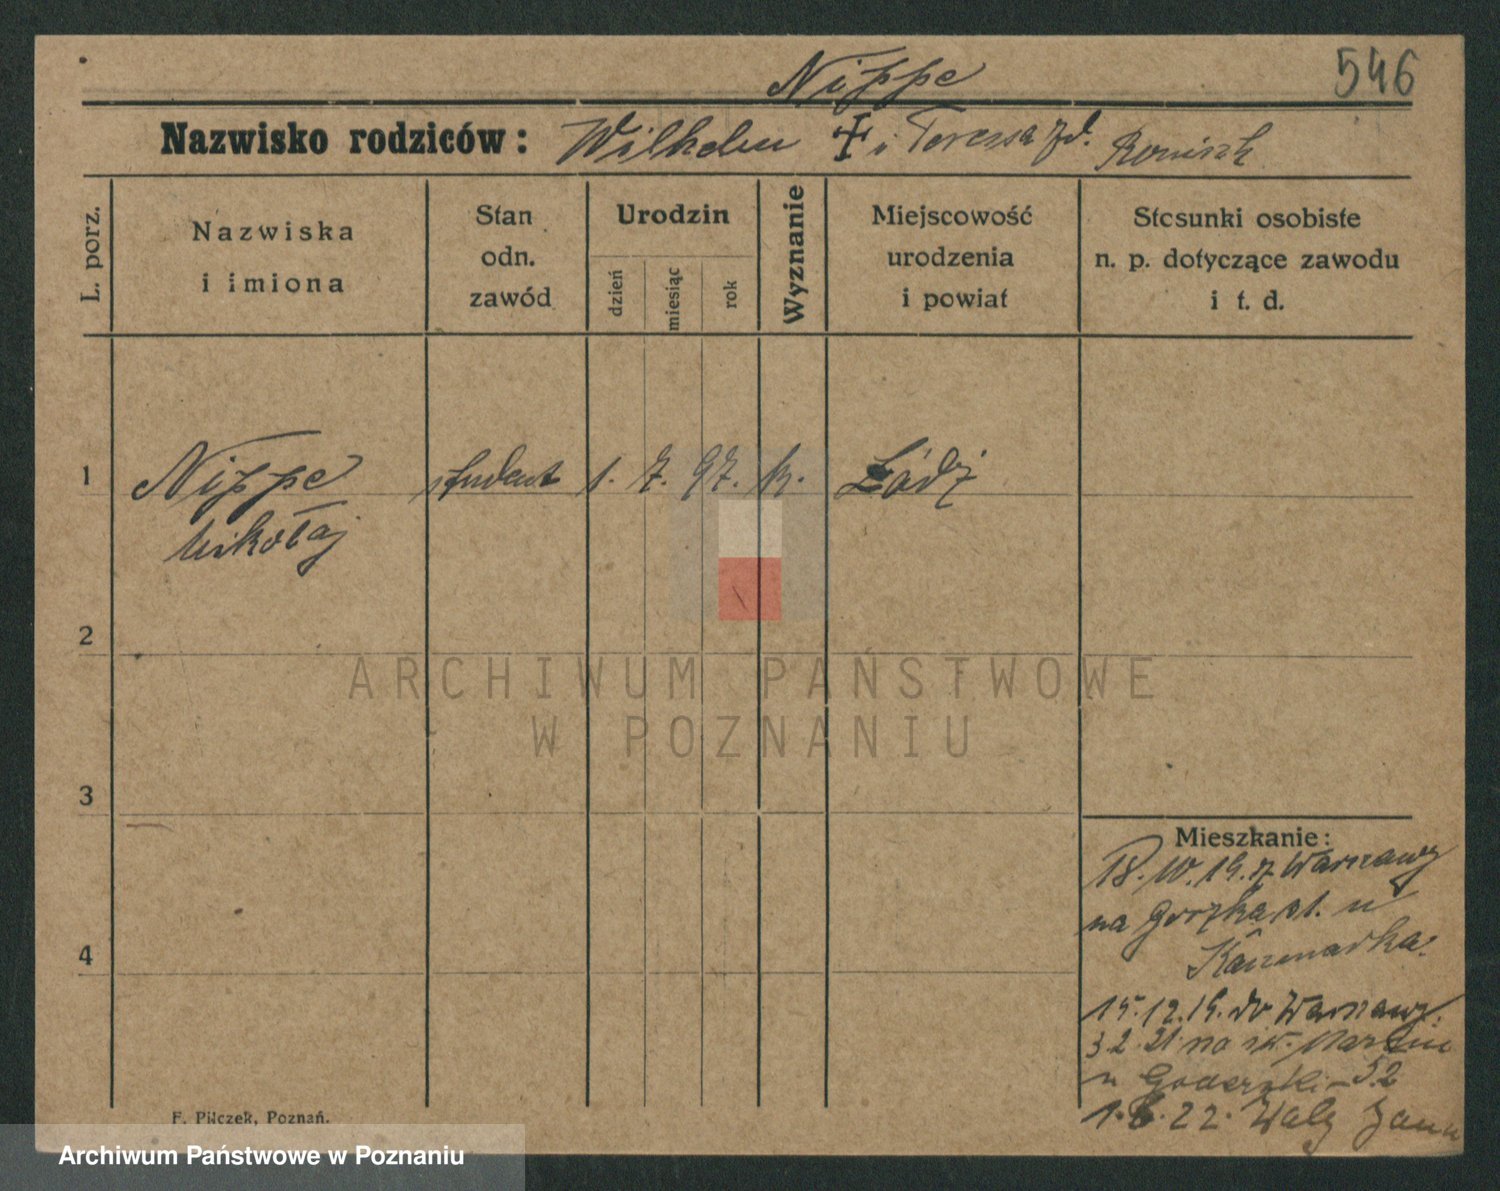 546
Nippe
Nazwisko rodziców: Wilhelm i Teressa zd.
L. porz.
Nazwiska
i imiona
Stan
odn.
zawód
Urodzin
dzień
miesiąc
rok
Wyznanie
Miejscowość
urodzenia
i powiat
Stosunki osobiste
n. p. dotyczące zawodu
i t. d.
1 Nippe student 1. 7. 97. k. Łódź
Mikołaj
2
ARCHIWUM PAŃSTWOWE
W POZNANIU
3
Mieszkanie:
18. 19. z Warszawy
na u
4
Kaczmarka.
15.12.19. do Warszawy.
3 2 21 na św. Marcin
u 52
1. 6. 22. Wały Jana
F. Pilczek, Poznań.
Archiwum Państwowe w Poznaniu